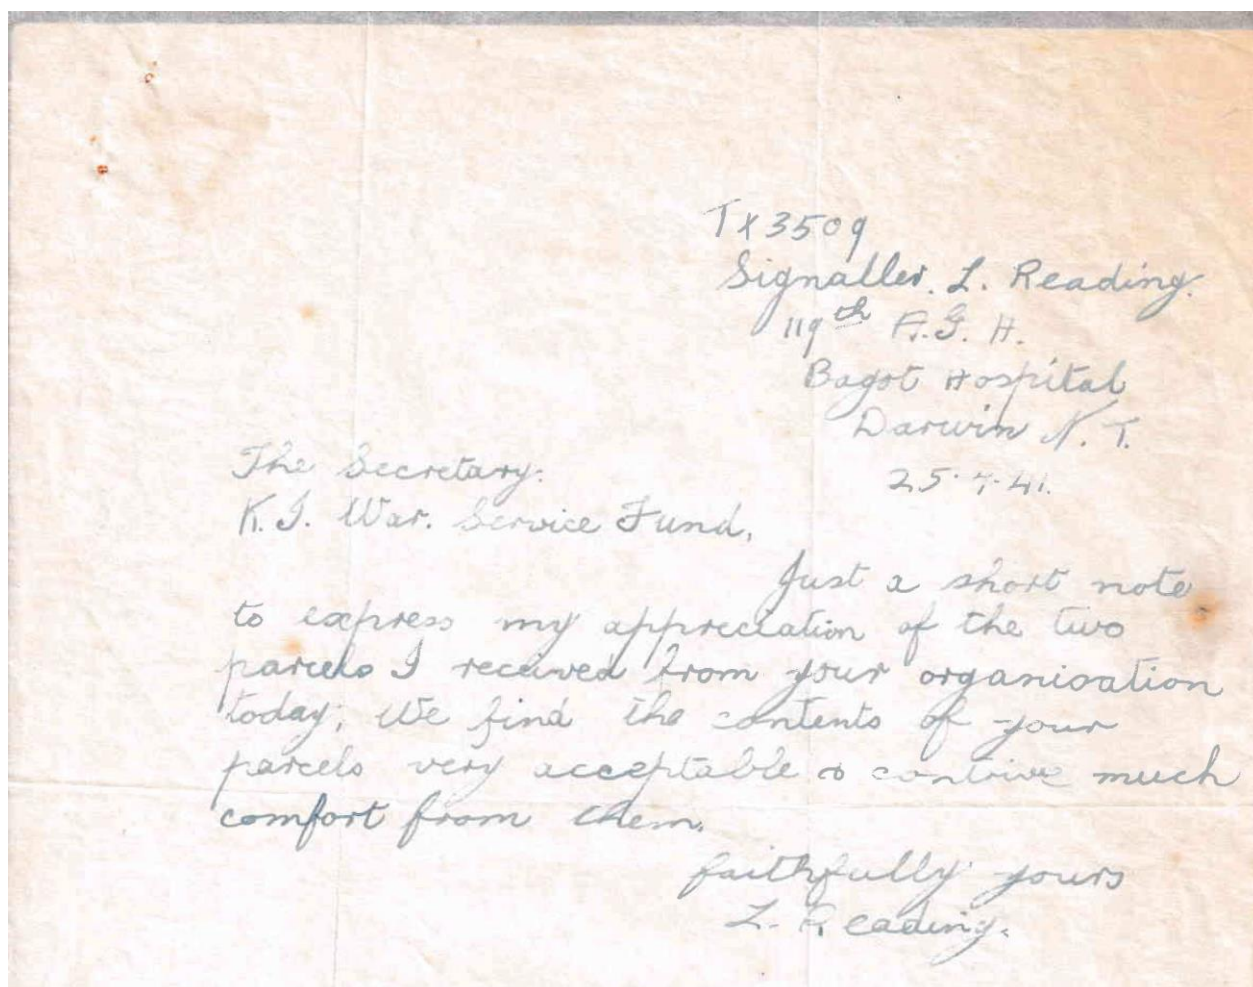 TX3509
Signaller. L. Reading.
119th A.G.H.
Bagot Hospital
Darwin N.T.
25.7.41.
The Secretary.
K.I. War. Service Fund,
Just a short note
to express my appreciation of the two
parcels I received from your organisation
today; We find the contents of your
parcels very acceptable & contrive much
comfort from them.
faithfully yours
L. Reading.